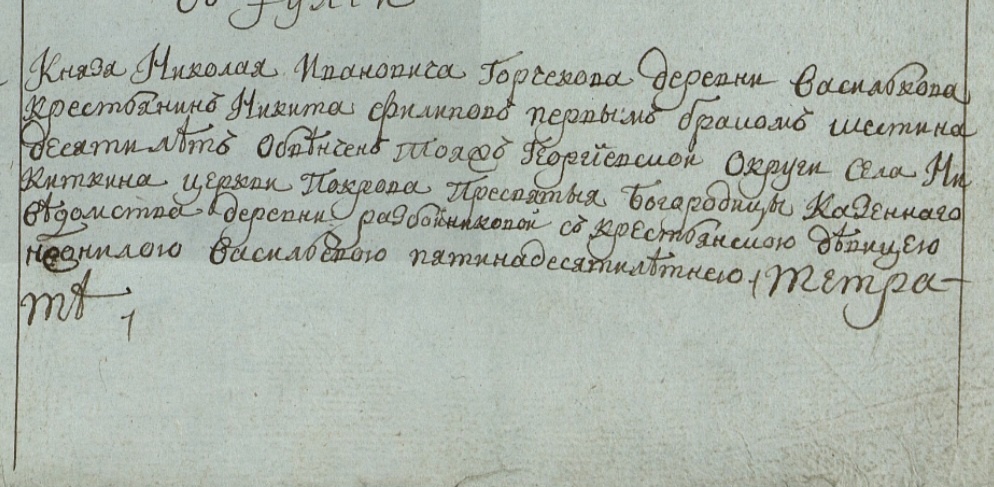 Князя Николая Ивановича Горчекова деревни Василькова
крестьянинъ Никита Филиповъ первымъ бракомъ шестина
десятилѣтъ Обвѣнченъ тояжъ Георгїевской Округи Села Ни
киткина церкви Покрова Пресвятыя Богародицы Казеннаго
вѣдомства деревни разбойниковой съ крестьянскою дѣвицею
неонилою Васильевою пятинадесятилѣтнею